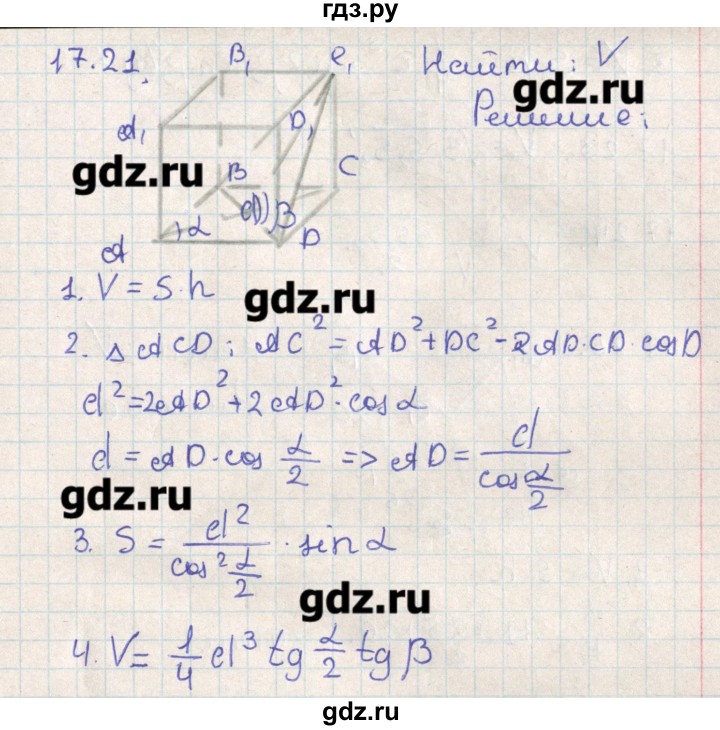 гдз.ру
17.21.
B₁ C₁ Найти: V
gdz.ru
Решение:
A₁ D₁
gdz.ru
B C
d β
α
A D
1. V = S·h
gdz.ru
2. △ ACD; AC² = AD² + DC² - 2AD·CD·cosD
d² = 2AD² + 2AD²·cosα
d = AD·cos α/2 => AD = d/cos α/2
gdz.ru
3. S = d²/cos² α/2 · sinα
gdz.ru
4. V = 1/4 d³ tg α/2 tg β
gdz.ru